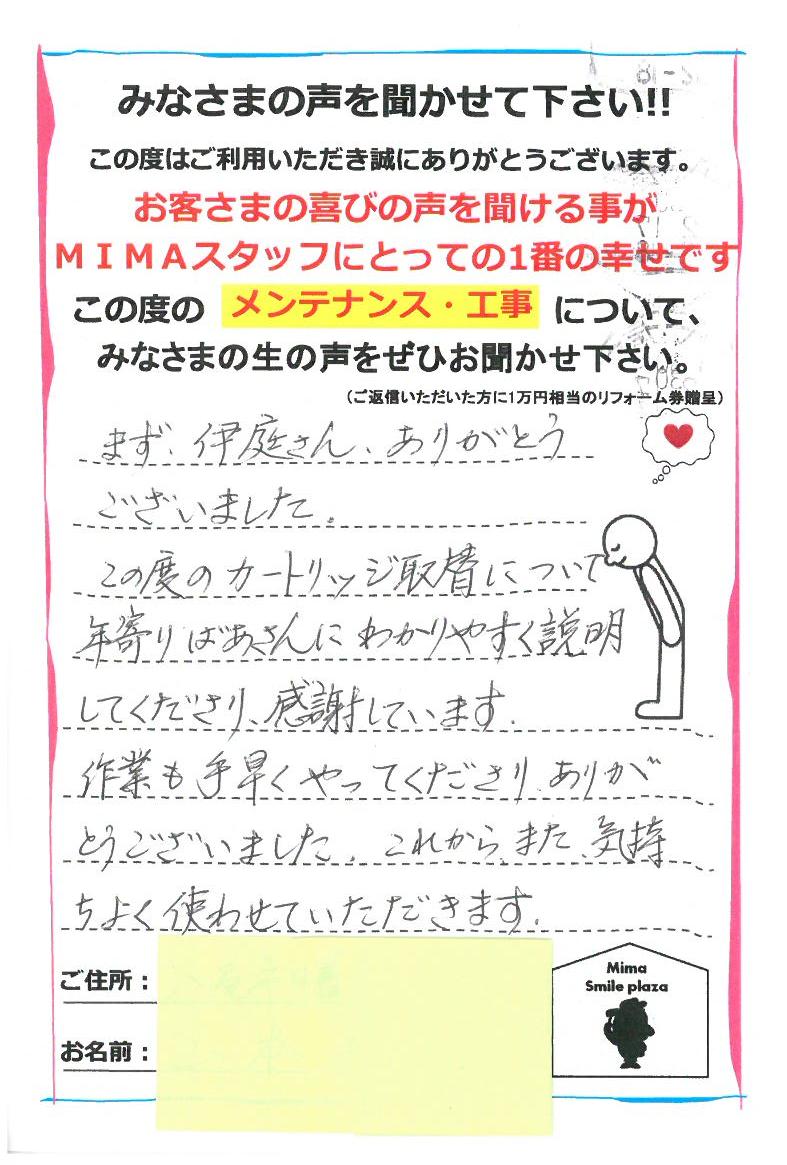 みなさまの声を聞かせて下さい!!
この度はご利用いただき誠にありがとうございます。
お客さまの喜びの声を聞ける事が
ＭＩＭＡスタッフにとっての1番の幸せです
この度の メンテナンス・工事 について、
みなさまの生の声をぜひお聞かせ下さい。
（ご返信いただいた方に1万円相当のリフォーム券贈呈）
まず、伊庭さん、ありがとう
ございました。
この度のカートリッジ取替について
年寄りばあさんにわかりやすく説明
してくださり、感謝しています.
作業も手早くやってくださり、ありが
とうございました。これから、また、気持
ちよく使わせていただきます.
ご住所：
お名前：
Mima
Smile plaza